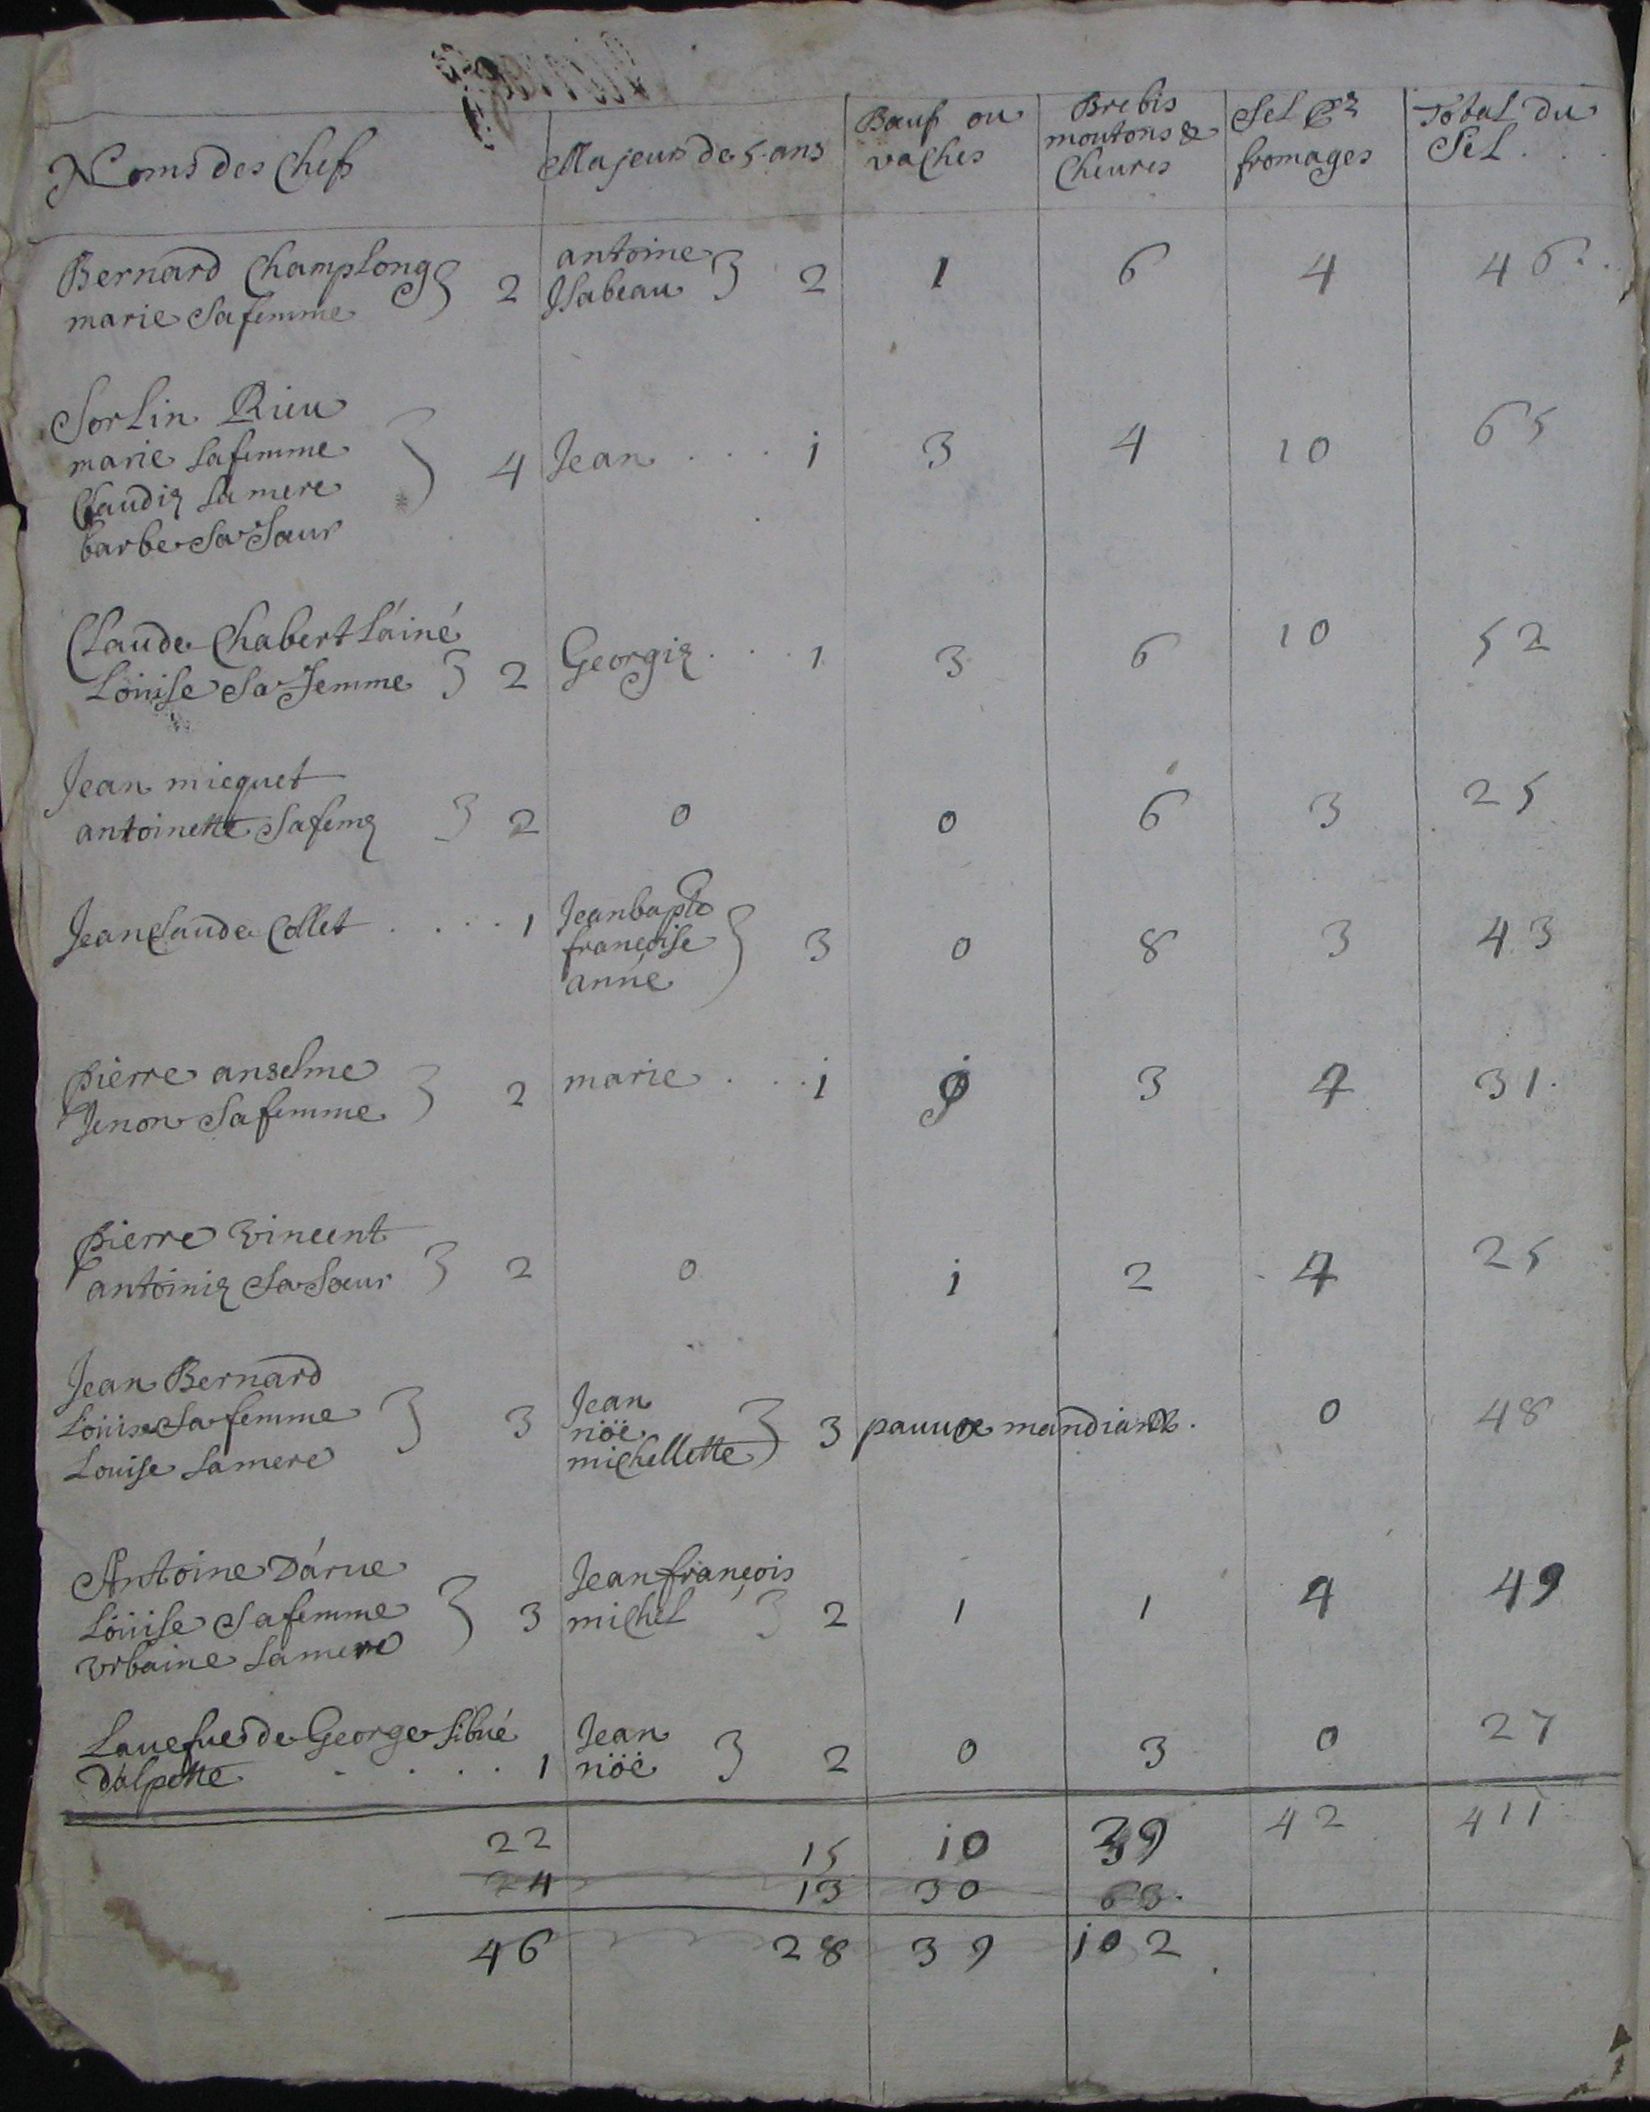 Noms des Chefs
Majeurs de 5 ans
Bœuf ou vaches
Brebis moutons & Cheures
Sel pr fromages
Total du Sel
Bernard Champlong } 2 antoine } 2 1 6 4 46
marie Sa femme Isabeau
Sorlin Rieu
marie sa femme } 4 Jean . . . 1 3 4 10 65
Claudiq sa mere
barbe Sa Sœur
Claude Chabert láiné
Loüise Sa femme } 2 Georgiq . . . 1 3 6 10 52
Jean micquet
antoinette Sa femq } 2 0 0 6 3 25
Jean Claude Collet . . . . 1 Jean bapte } 3 0 8 3 43
françoise
anne
pierre anselme } 2 marie . . . 1 3 4 31
Jenon Sa femme
pierre vincent } 2 0 1 2 4 25
antoiniq Sa Sœur
Jean Bernard } 3 Jean } 3 pauure mandiant . 0 48
Loüise Sa femme nöé
Louise sa mere michellette
Antoine Dárue } 3 Jean françois } 2 1 1 4 49
Loüise Sa femme michel
Vrbaine sa mere
La uefue de George Sibué Jean } 2 0 3 0 27
D'alpette . . . . 1 nöé
22 15 10 39 42 411
24 13 30 63
46 28 39 102